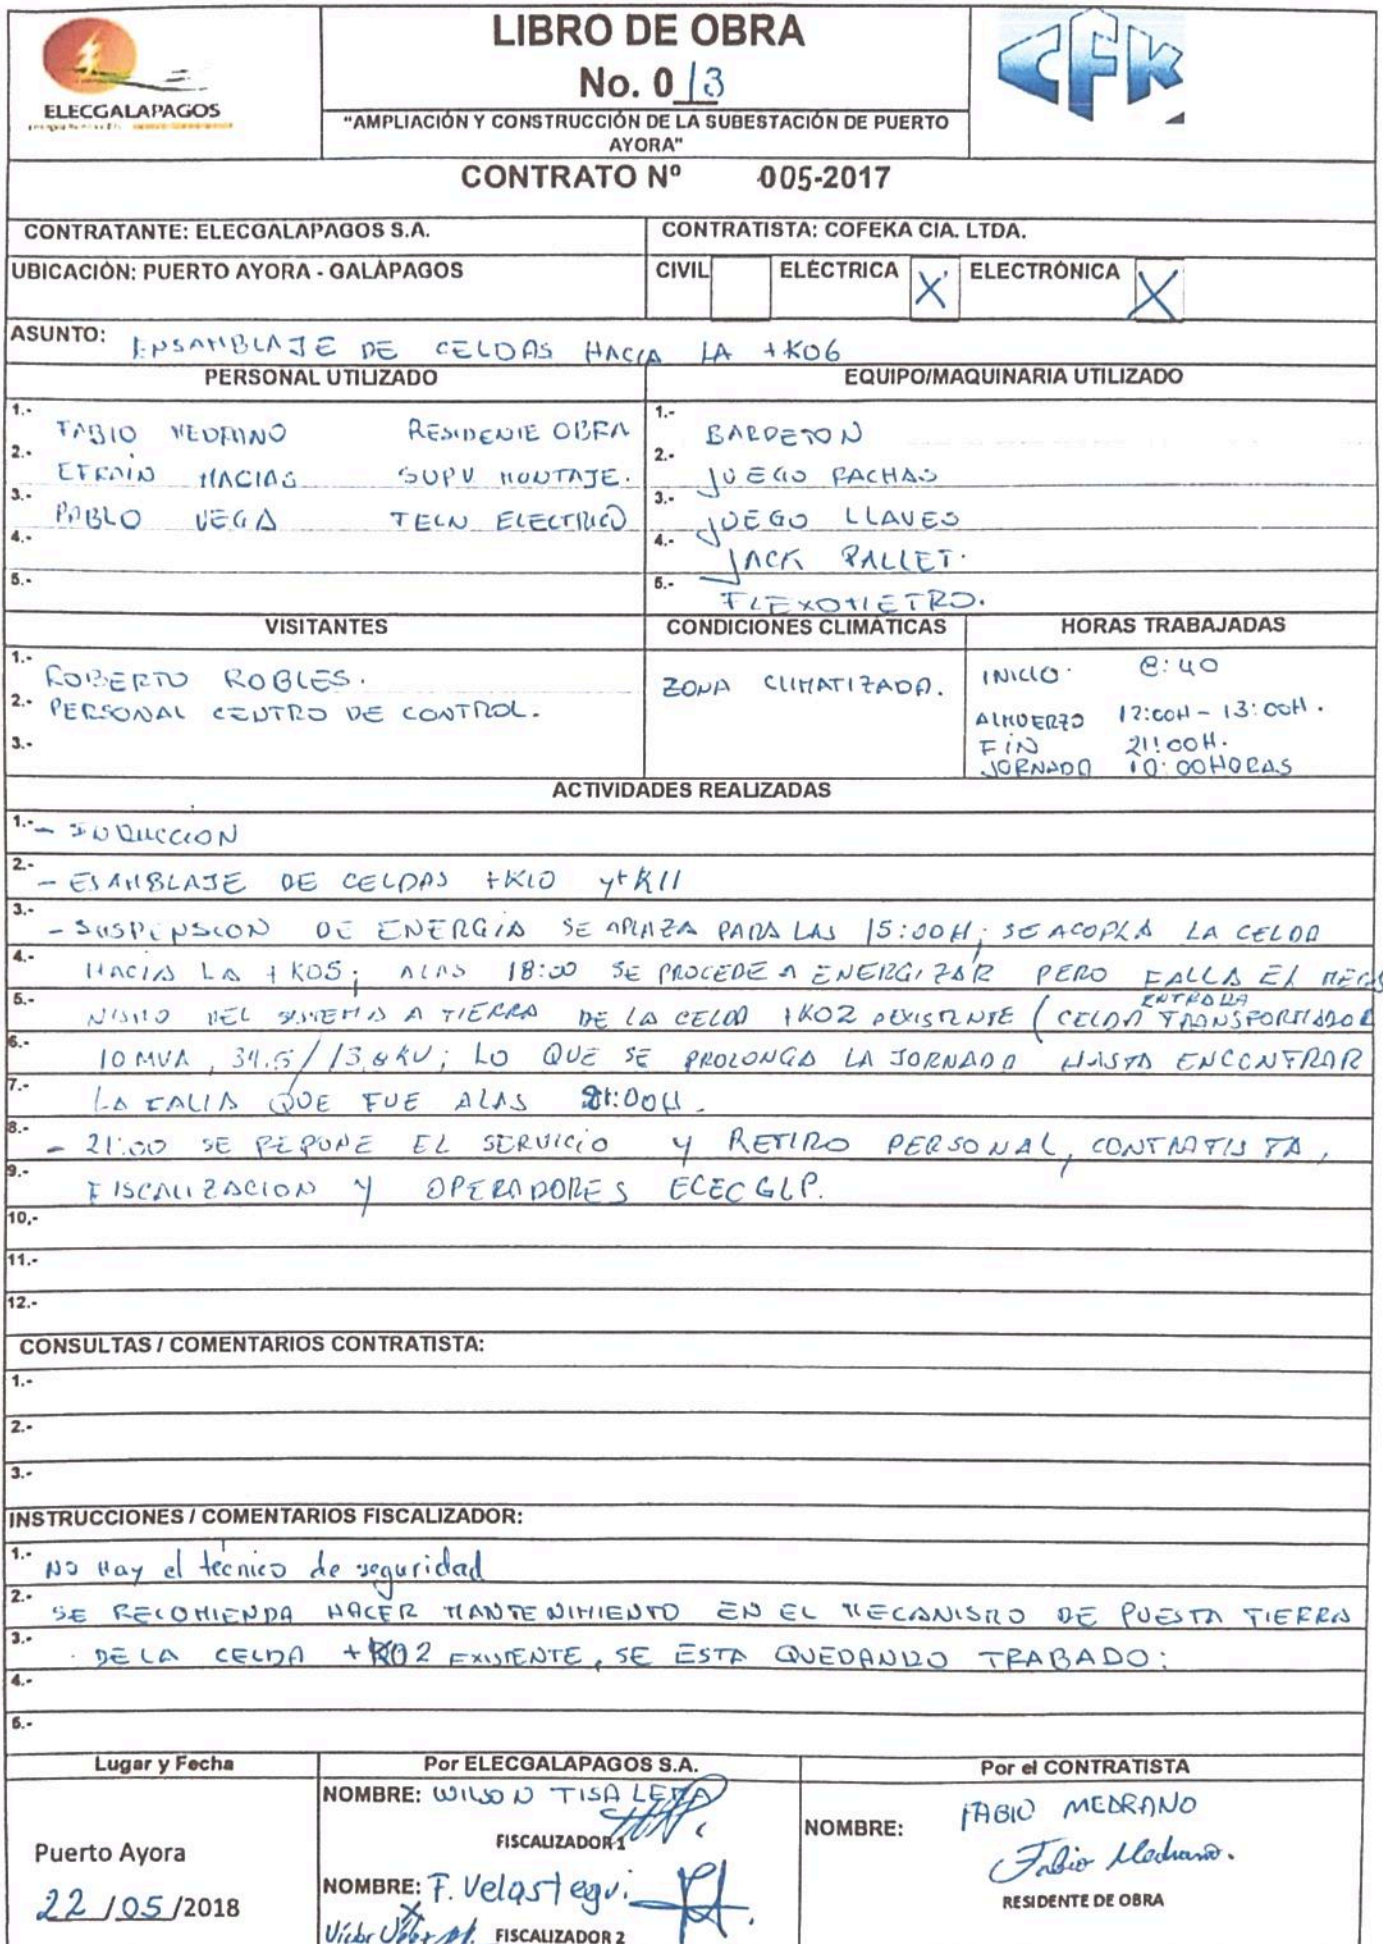 ELECGALAPAGOS
LIBRO DE OBRA
No. 013
"AMPLIACIÓN Y CONSTRUCCIÓN DE LA SUBESTACIÓN DE PUERTO
AYORA"
CFK
CONTRATO Nº 005-2017
CONTRATANTE: ELECGALAPAGOS S.A. CONTRATISTA: COFEKA CIA. LTDA.
UBICACIÓN: PUERTO AYORA - GALÁPAGOS CIVIL ELÉCTRICA X ELECTRÓNICA X
ASUNTO: ENSAMBLAJE DE CELDAS HACIA LA +K06
PERSONAL UTILIZADO EQUIPO/MAQUINARIA UTILIZADO
1.- FABIO MEDRANO RESIDENTE OBRA
2.- EFRAIN MACIAS SUPV MONTAJE.
3.- PABLO VEGA TECN ELECTRICO
4.-
5.-
1.- BARRETON
2.- JUEGO RACHAS
3.- JUEGO LLAVES
4.- JACK PALLET.
5.- FLEXOMETRO.
VISITANTES CONDICIONES CLIMÁTICAS HORAS TRABAJADAS
1.- ROBERTO ROBLES.
2.- PERSONAL CENTRO DE CONTROL.
3.-
ZONA CLIMATIZADA.
INICIO. 8:40
ALMUERZO 12:00H - 13:00H.
FIN 21:00H.
JORNADA 10:00 HORAS
ACTIVIDADES REALIZADAS
1.- - INDUCCION
2.- - ESAMBLAJE DE CELDAS +K10 y +K11
3.- - SUSPENSION DE ENERGIA SE APLAZA PARA LAS 15:00H; SE ACOPLA LA CELDA
4.- HACIA LA +K05; ALAS 18:00 SE PROCEDE A ENERGIZAR PERO FALLA EL MECA
5.- NISMO DEL SISTEMA A TIERRA DE LA CELDA +K02 (CELDA ENTRADA TRANSFORMADOR
6.- 10 MVA, 34.5/13,8 KV; LO QUE SE PROLONGA LA JORNADA HASTA ENCONTRAR
7.- LA FALLA QUE FUE ALAS 21:00H.
8.- - 21:00 SE REPONE EL SERVICIO Y RETIRO PERSONAL, CONTRATISTA,
9.- FISCALIZACION Y OPERADORES ECECGLP.
10,-
11.-
12.-
CONSULTAS / COMENTARIOS CONTRATISTA:
1.-
2.-
3.-
INSTRUCCIONES / COMENTARIOS FISCALIZADOR:
1.- No Hay el técnico de seguridad
2.- SE RECOMIENDA HACER MANTENIMIENTO EN EL MECANISMO DE PUESTA TIERRA
3.- DE LA CELDA +K02 EXISTENTE, SE ESTA QUEDANDO TRABADO.
4.-
5.-
Lugar y Fecha Por ELECGALAPAGOS S.A. Por el CONTRATISTA
NOMBRE: WILSON TISALEMA
FISCALIZADOR 1
NOMBRE: F. Velastegui
Víctor
FISCALIZADOR 2
Puerto Ayora
22/05/2018
NOMBRE: FABIO MEDRANO
Fabio Medrano.
RESIDENTE DE OBRA